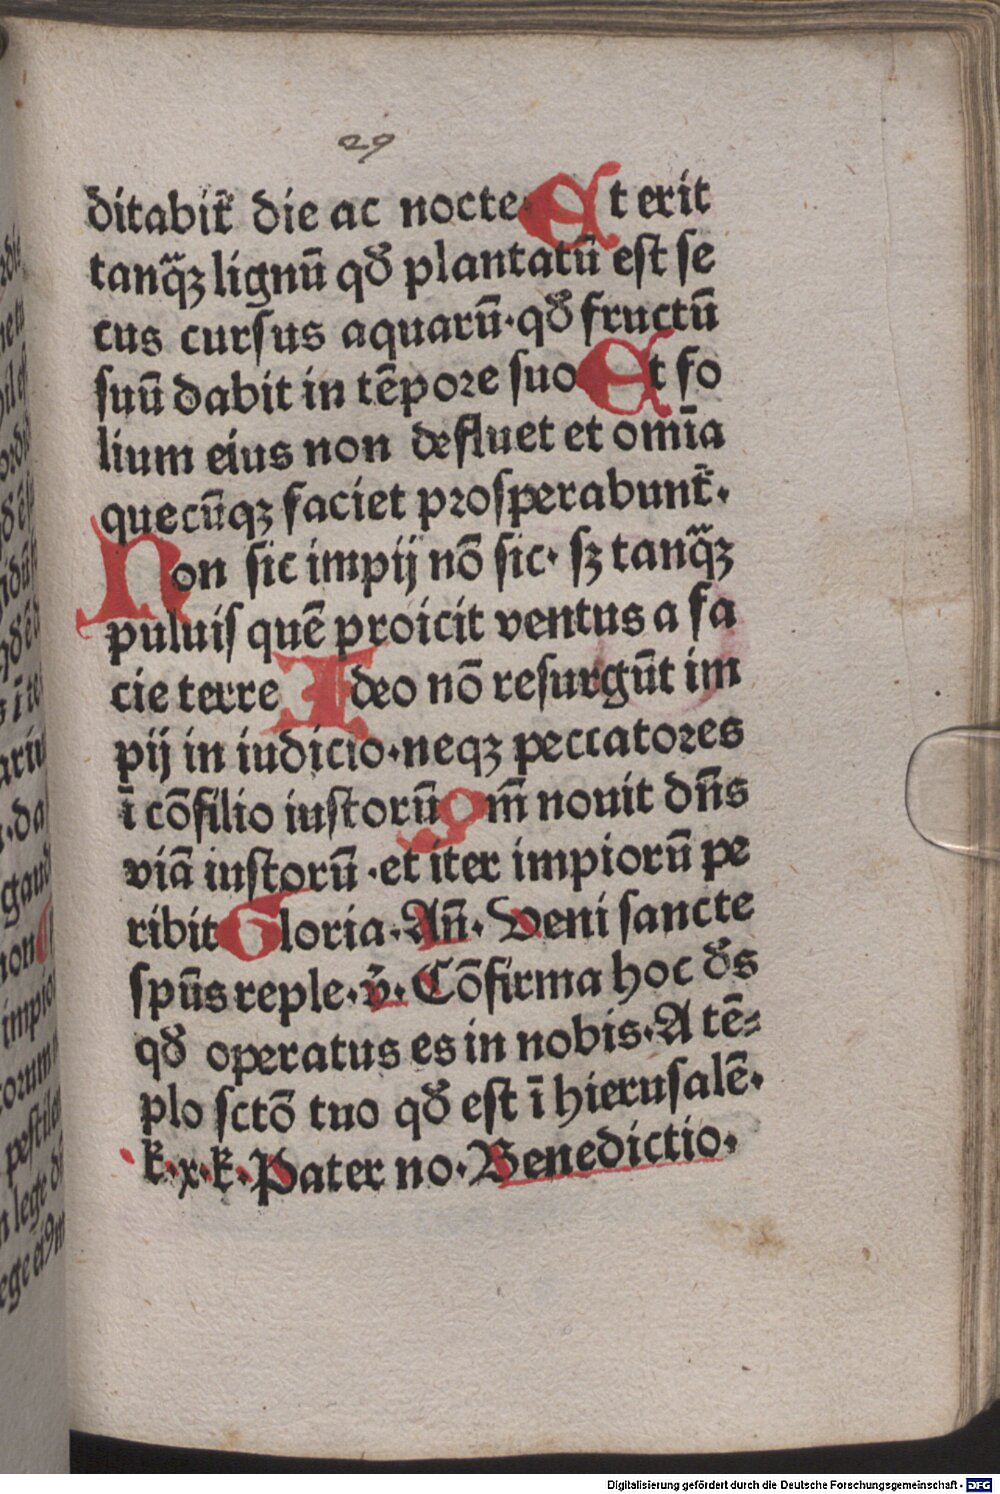 29
ditabit᷑ die ac nocte. Et erit
tanq̃ꝫ lignū qđ plantatū est se
cus cursus aquarū. qđ fructū
suū dabit in tēpore suo Et fo
lium eius non defluet et om̄ia
quecūqꝫ faciet prosperabunt᷑.
Non sic impij nō sic. sꝫ tanq̃ꝫ
puluis quē proicit ventus a fa
cie terre Ideo nō resurgūt im
pij in iudicio. neqꝫ peccatores
ī cōsilio iustorū Qm̄ nouit dn̄s
viā iustorū. et iter impiorū pe
ribit Gloria. An̄. Veni sancte
sp̄us reple. v̄. Cōfirma hoc đs
qđ operatus es in nobis. A tē⸗
plo sctō tuo qđ est ī hierusalē.
k. x. k. Pater no. Benedictio.
Digitalisierung gefördert durch die Deutsche Forschungsgemeinschaft - DFG